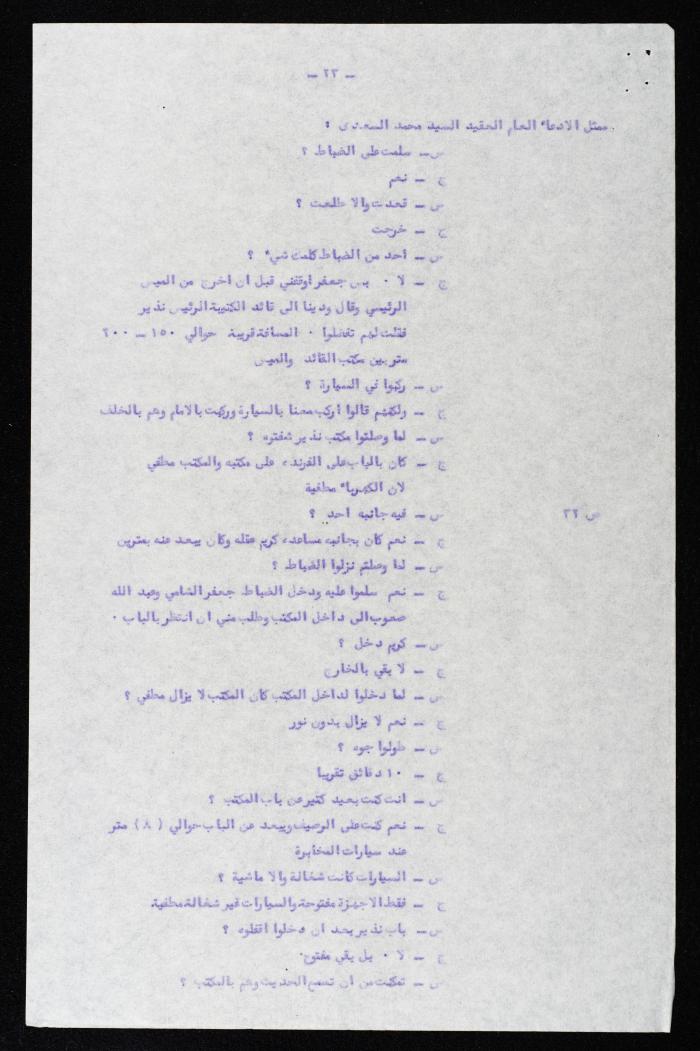 - ٢٣ -
ممثل الادعاء العام العقيد السيد محمد السعدى :
س - سلمت على الضباط ؟
ج - نعم
س - قعدت والا طلعت ؟
ج - خرجت
س - احد من الضباط كلمك شيء ؟
ج - لا ٠ بس جعفر اوقفني قبل ان اخرج من الميس
الرئيسي وقال ودينا الى قائد الكتيبة الرئيس نذير
فقلت لهم تفضلوا ٠ المسافة قريبة حوالي ١٥٠ - ٢٠٠
متر بين مكتب القائد والميس
س - ركبوا في السيارة ؟
ج - ولكنهم قالوا اركب معنا بالسيارة وركبت بالامام وهم بالخلف
س - لما وصلتوا مكتب نذير شفتوه ؟
ج - كان بالباب على الفرنده على مكتبه والمكتب مطفي
لان الكهرباء مطفية
س - فيه جانبه احد ؟
ص ٢٢
ج - نعم كان بجانبه مساعده كريم عقله وكان يبعد عنه بمترين
س - لما وصلتم نزلوا الضباط ؟
ج - نعم سلموا عليه ودخل الضباط جعفر الشامي وعبد الله
صعوب الى داخل المكتب وطلب مني ان انتظر بالباب ٠
س - كريم دخل ؟
ج - لا بقي بالخارج
س - لما دخلوا لداخل المكتب كان المكتب لا يزال مطفي ؟
ج - نعم لا يزال بدون نور
س - طولوا جوه ؟
ج - ١٠ دقائق تقريبا
س - انت كنت بعيد كثير عن باب المكتب ؟
ج - نعم كنت على الرصيف ويبعد عن الباب حوالي ( ٨ ) متر
عند سيارات المخابرة
س - السيارات كانت شغالة والا ماشية ؟
ج - فقط الاجهزة مفتوحة والسيارات غير شغالة مطفية
س - باب نذير بعد ان دخلوا اقفلوه ؟
ج - لا ٠ بل بقي مفتوح٠
س - تمكنت من ان تسمع الحديث وهم بالمكتب ؟